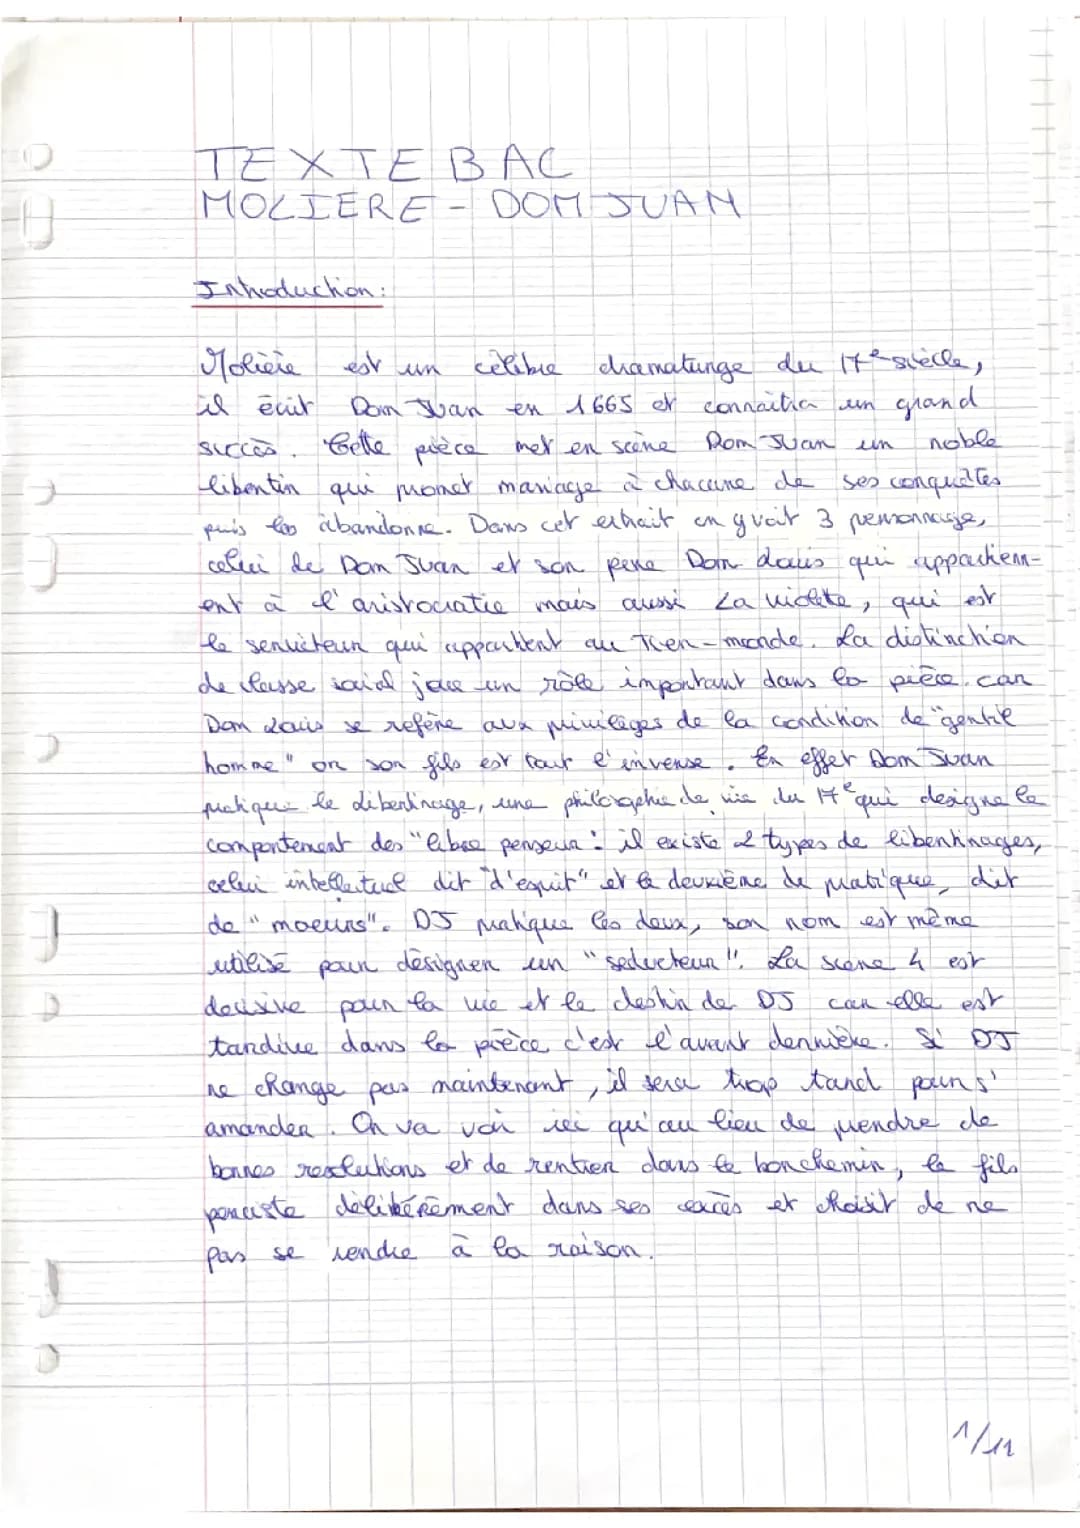 TEXTE BAC
MOLIERE - DOM JUAN
Introduction :
Molière est un célèbre dramaturge du 17e siècle,
il écrit Dom Juan en 1665 et connaitra un grand
succès. Cette pièce met en scène Dom Juan un noble
libertin qui promet mariage à chacune de ses conquêtes
puis les abandonne. Dans cet extrait on y voit 3 personnage,
celui de Dom Juan et son père Dom Louis qui appartienn-
ent à l'aristocratie mais aussi La violette, qui est
le serviteur qui appartient au Tiers-monde. La distinction
de classe social joue un rôle important dans la pièce. car
Dom Louis se refère aux privilèges de la condition de "gentil
homme" or son fils est tout l'inverse. En effet Dom Juan
pratique le libertinage, une philosophie de vie du 17e qui designe le
comportement des "libre penseur : il existe 2 types de libertinages,
celui intellectuel dit "d'esprit" et la deuxième de pratique, dit
de "moeurs". DJ pratique les deux, son nom est même
utilisé pour désigner un "seducteur". La scène 4 est
decisive pour la vie et le destin de DJ car elle est
tardive dans la pièce c'est l'avant dernière. Si DJ
ne change pas maintenant, il sera trop tard pour s'
amander. On va voir ici qu'au lieu de prendre de
bonnes resolutions et de rentrer dans le bon chemin, le fils
persiste délibérément dans ses excès et choisit de ne
pas se rendre à la raison.
1/11